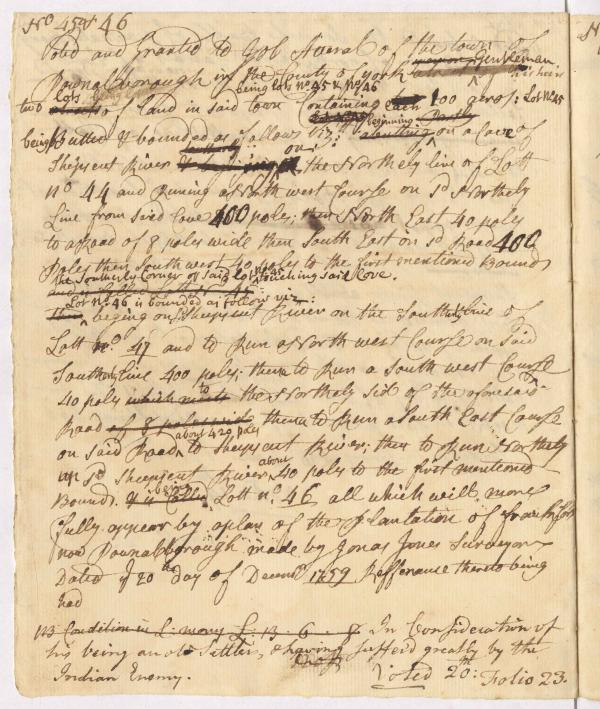 No. 45 & 46
Voted and Granted to Job Averal of the town of
Pownalborough in the County of York Gentleman
being lots No. 45 & No. 46
two Lots of Land in said town Containing each 100 acres: Lot No 45
being Butted & bounded as follows viz: beginning on a Cove of
Sheepscut River on the Northely line of Lott
no 44 and Runing a North west Course on sd Northely
Line from said Cove 400 poles; then North East 40 poles
to a Road of 8 poles wide then South East on sd Road 400
Poles then South west 40 poles to the first mentioned Bound
the Southerly Corner of said lot No 45 touching said Cove.
Lot No. 46 is bounded as follows viz:
begining on Sheepscut River on the Southerly Line of
Lott no. 47 and to Run a North west Course on Said
Southerly Line 400 poles; then to Run a South west Course
40 poles which meets to the Northely sid of the aforesaid
Road of 8 poles wide then to Run a South East Course
on said Road about 420 poles to Sheepscut River; then to Run Northely
up sd Sheepscut River about 40 poles to the first mentioned
Bound. & is Called being Lott no. 46 all which will more
fully appear by a plan of the Plantation of Frankfort
now Pownalborough made by Jonas Jones Surveyor
Dated ye 20th day of Decemr 1759 Refferance thereto being
had
Condition in L: mony £: 13-6-8 In Consideration of
his being an old Settler, & having sufferd greatly by the
Indian Enemy. Voted 20th: Folio 23.